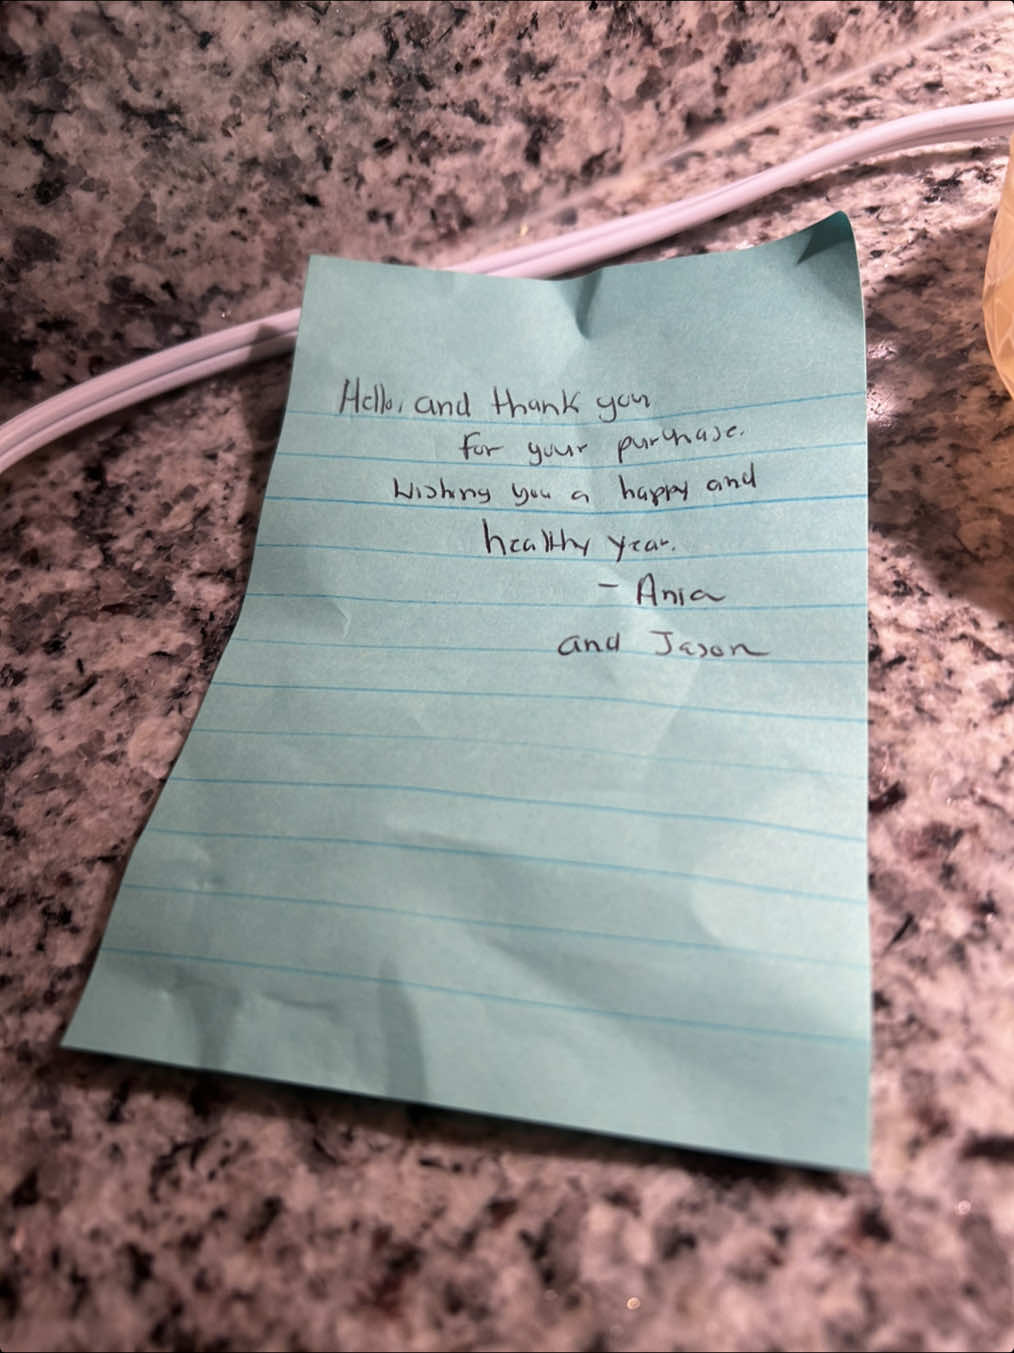 Hello, and thank you
for your purchase.
Wishing you a happy and
healthy year.
- Ania
and Jason